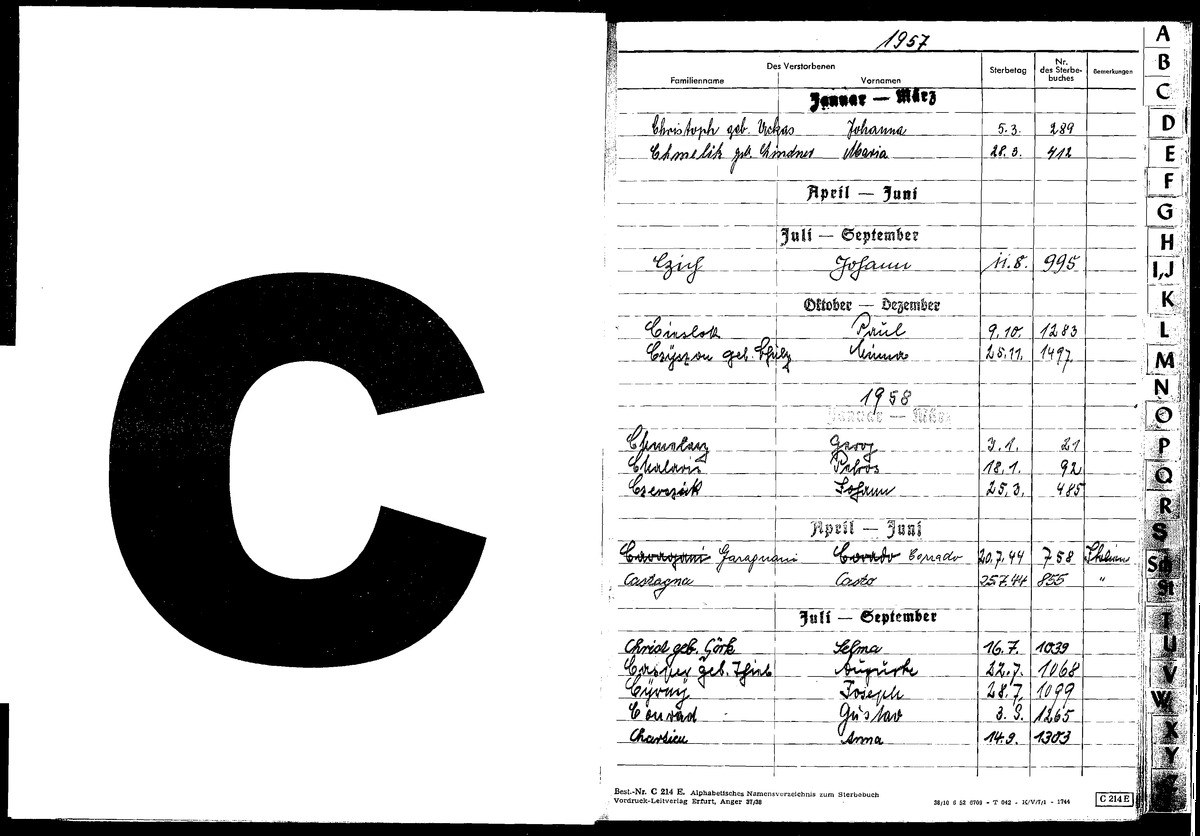 C
1957
Des Verstorbenen
Familienname Vornamen Sterbetag Nr. des Sterbe-buches Bemerkungen
Januar — März
Christoph geb. Johanna 5.3. 289
Chmelik geb. Lindner Maria 28.3. 412
April — Juni
Juli — September
Czich Johann 11.8. 995
Oktober — Dezember
Cieslok Paul 9.10. 1283
geb. Minna 25.11. 1497
1958
Januar — März
Georg 3.1. 21
Petros 18.1. 92
Johann 25.3. 485
April — Juni
Garagnani Corrado 20.7.44 758
Castagna Casto 25.7.44 855 "
Juli — September
Christ geb. Görk Selma 16.7. 1039
Casper geb. Auguste 22.7. 1068
Joseph 28.7. 1099
Conrad Gustav 3.9. 1265
Anna 14.9. 1303
Best.-Nr. C 214 E. Alphabetisches Namensverzeichnis zum Sterbebuch
Vordruck-Leitverlag Erfurt, Anger 37/38
C 214 E
A
B
C
D
E
F
G
H
I,J
K
L
M
N
O
P
Q
R
S
Sch
St
T
U
V
W
X
Y